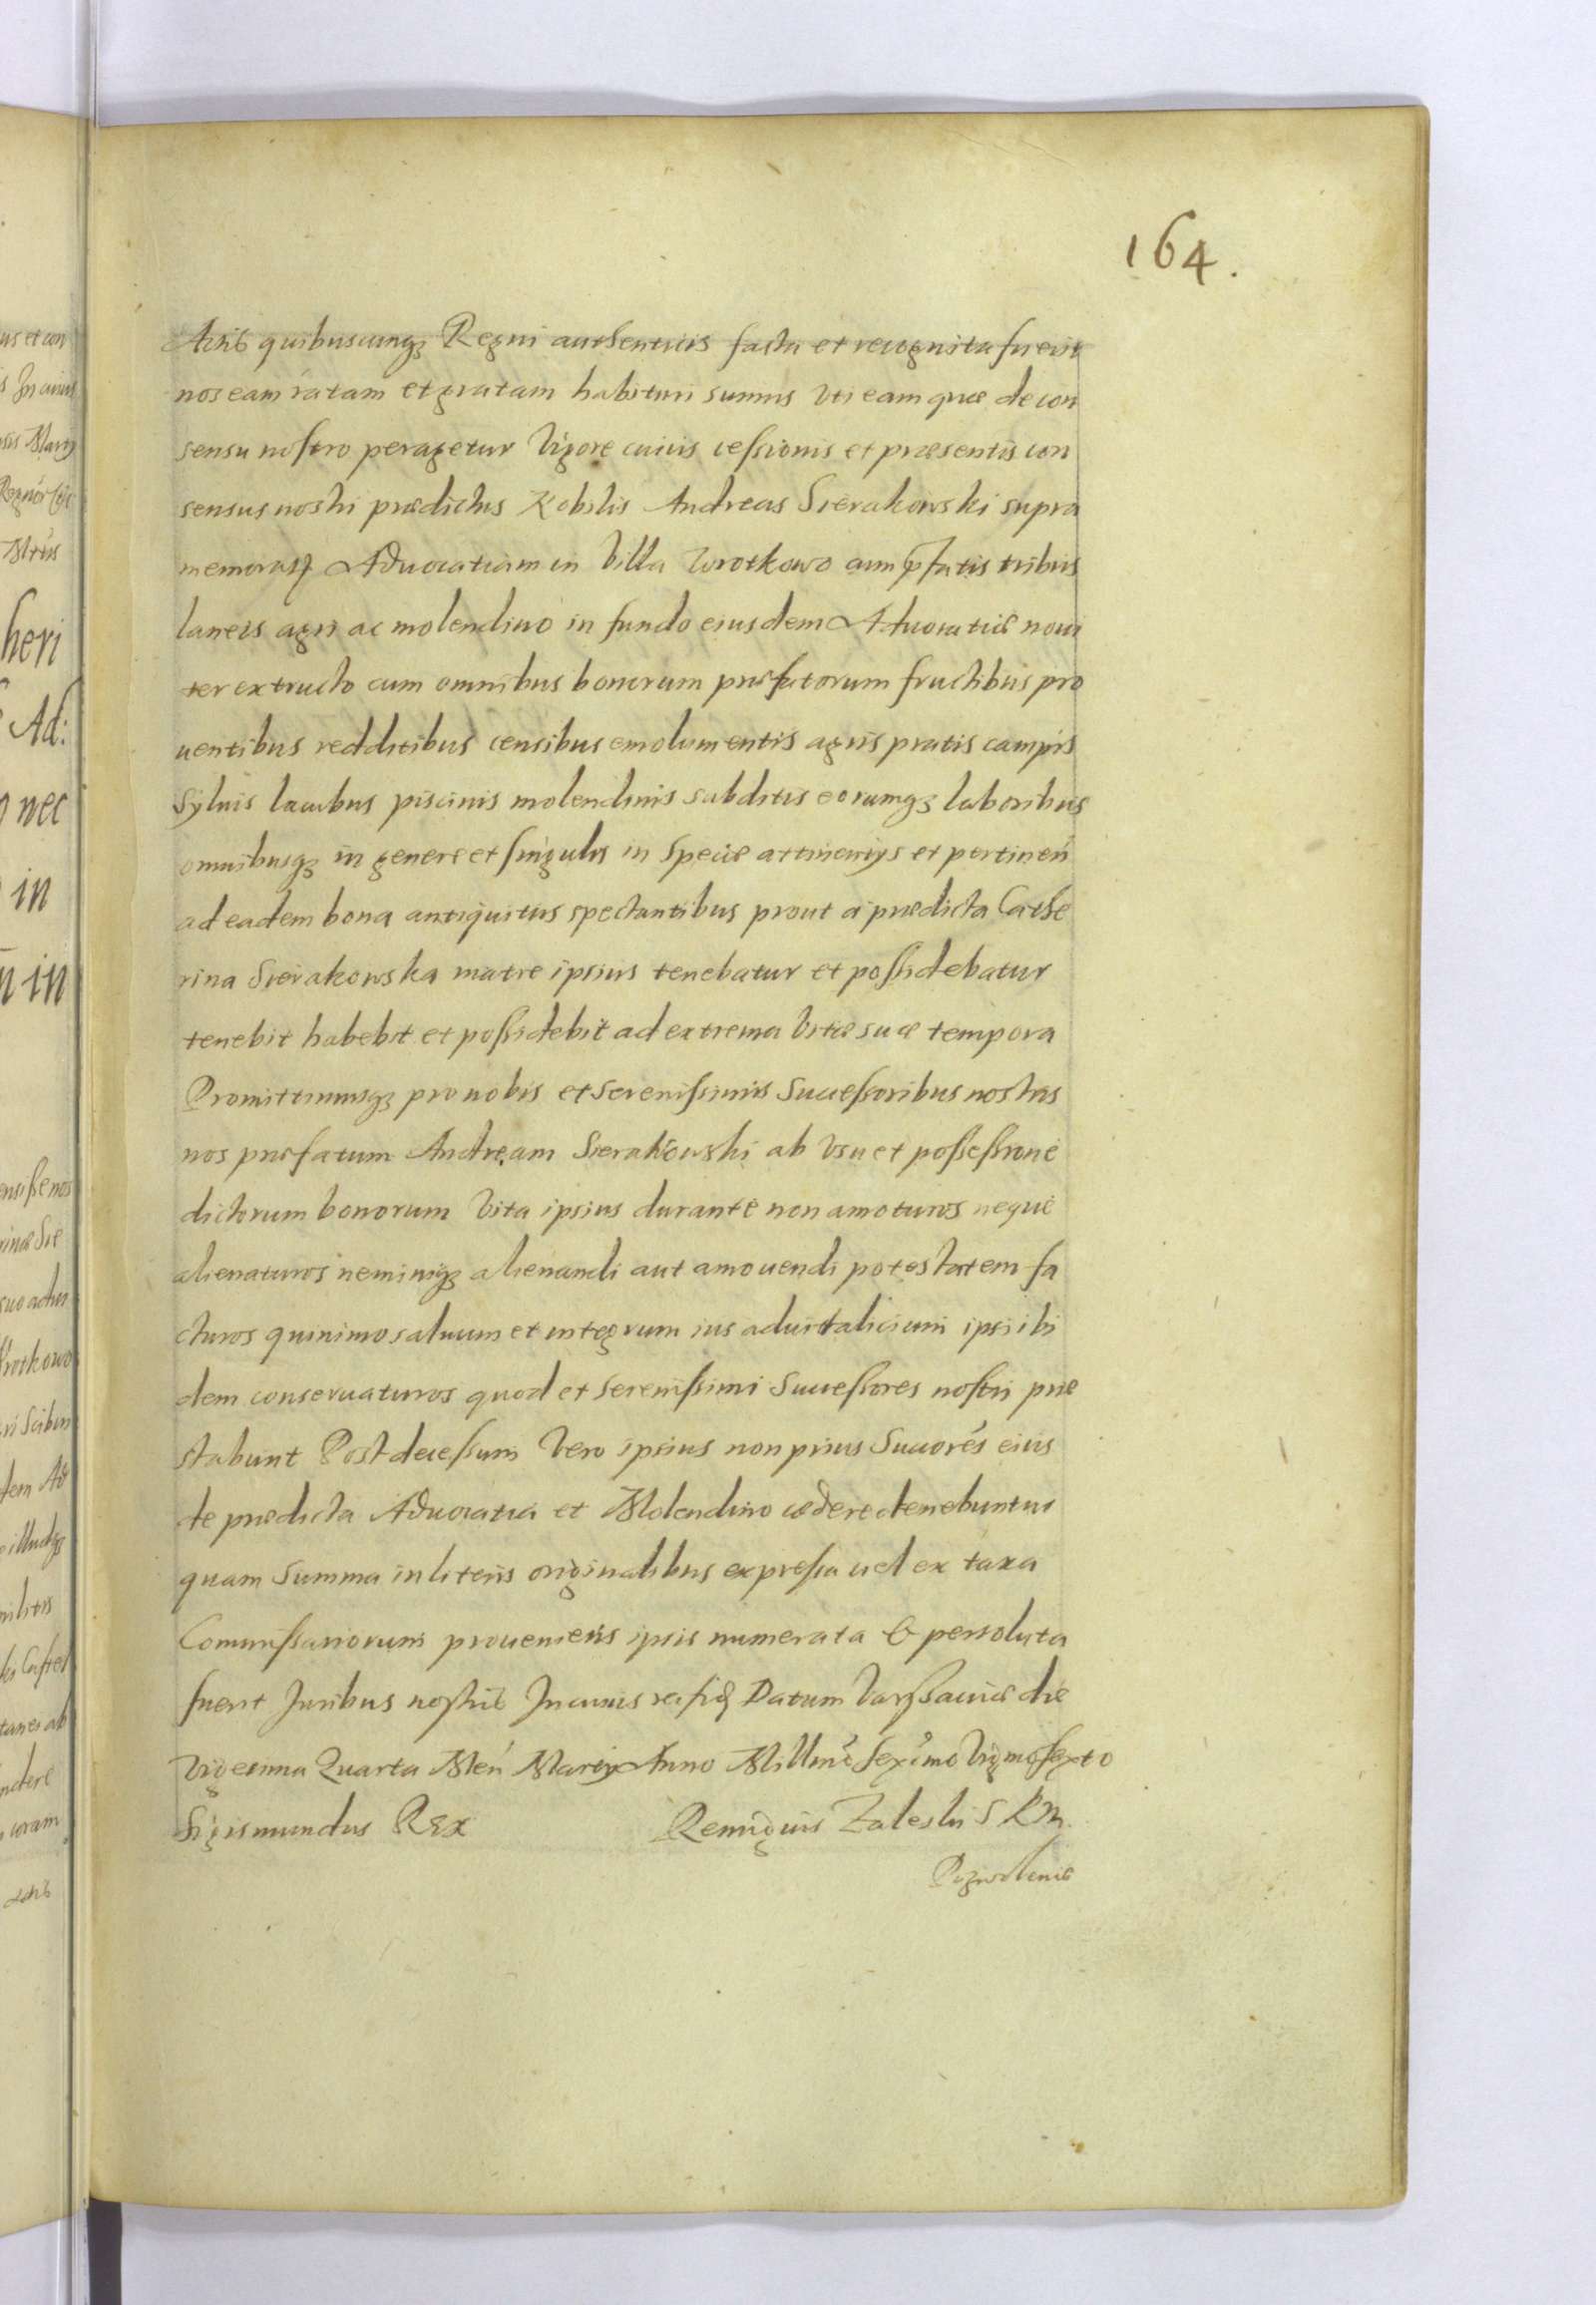 164.
Actis quibuscunqꝫ Regni authenticis facta et recognita fuerit
nos eam ratam et gratam habituri sumus vti eam quæ de con
sensu nostro peragetur Vigore cuius cessionis et præsentis con
sensus nostri prædictus Nobilis Andreas Sierakowski supra
memorat Aduocatiam in Villa Wrotkowo cum pfatis tribus
laneis agri ac molendino in fundo eiusdem Aduocatiæ noui
ter extructo cum omnibus bonorum præfatorum fructibus pro
uentibus redditibus censibus emolumentis agris pratis campis
Syluis lacubus piscinis molendinis subditis eorumqꝫ laboribus
omnibusqꝫ in genere et singulis in Specie attinentijs et pertineń
ad eadem bona antiquitus spectantibus prout a prædicta Cathe
rina Sierakowska matre ipsius tenebatur et possidebatur
tenebit habebit et possidebit ad extrema Vitæ suæ tempora
Promittimusqꝫ pro nobis et Serenissimis Successoribus nostris
nos præfatum Andream Sierakowski ab Vsu et possessione
dictorum bonorum Vita ipsius durante non amoturos neque
alienaturos neminiqꝫ alienandi aut amouendi potestatem fa
cturos quinimo saluum et integrum ius aduitalicium ipsi ibi
dem conseruaturos quod et Serenissimi Successores nostri præ
stabunt Post decessum Vero ipsius non prius Succorés eius
de prædicta Aduocatia et Molendino cædere tenebuntur
quam Summa in literis originalibus expressa uel ex taxa
Commissariorum proueniens ipsis numerata & persoluta
fuerit Juribus nostris In cuius rei fid Datum Varssauiæ die
Vigesima Quarta Meń Martij Anno Millmo Sexcmo Vigmo Sexto
Sigismundus Rex Remigius Zaleski S R M.
Pozwolenie